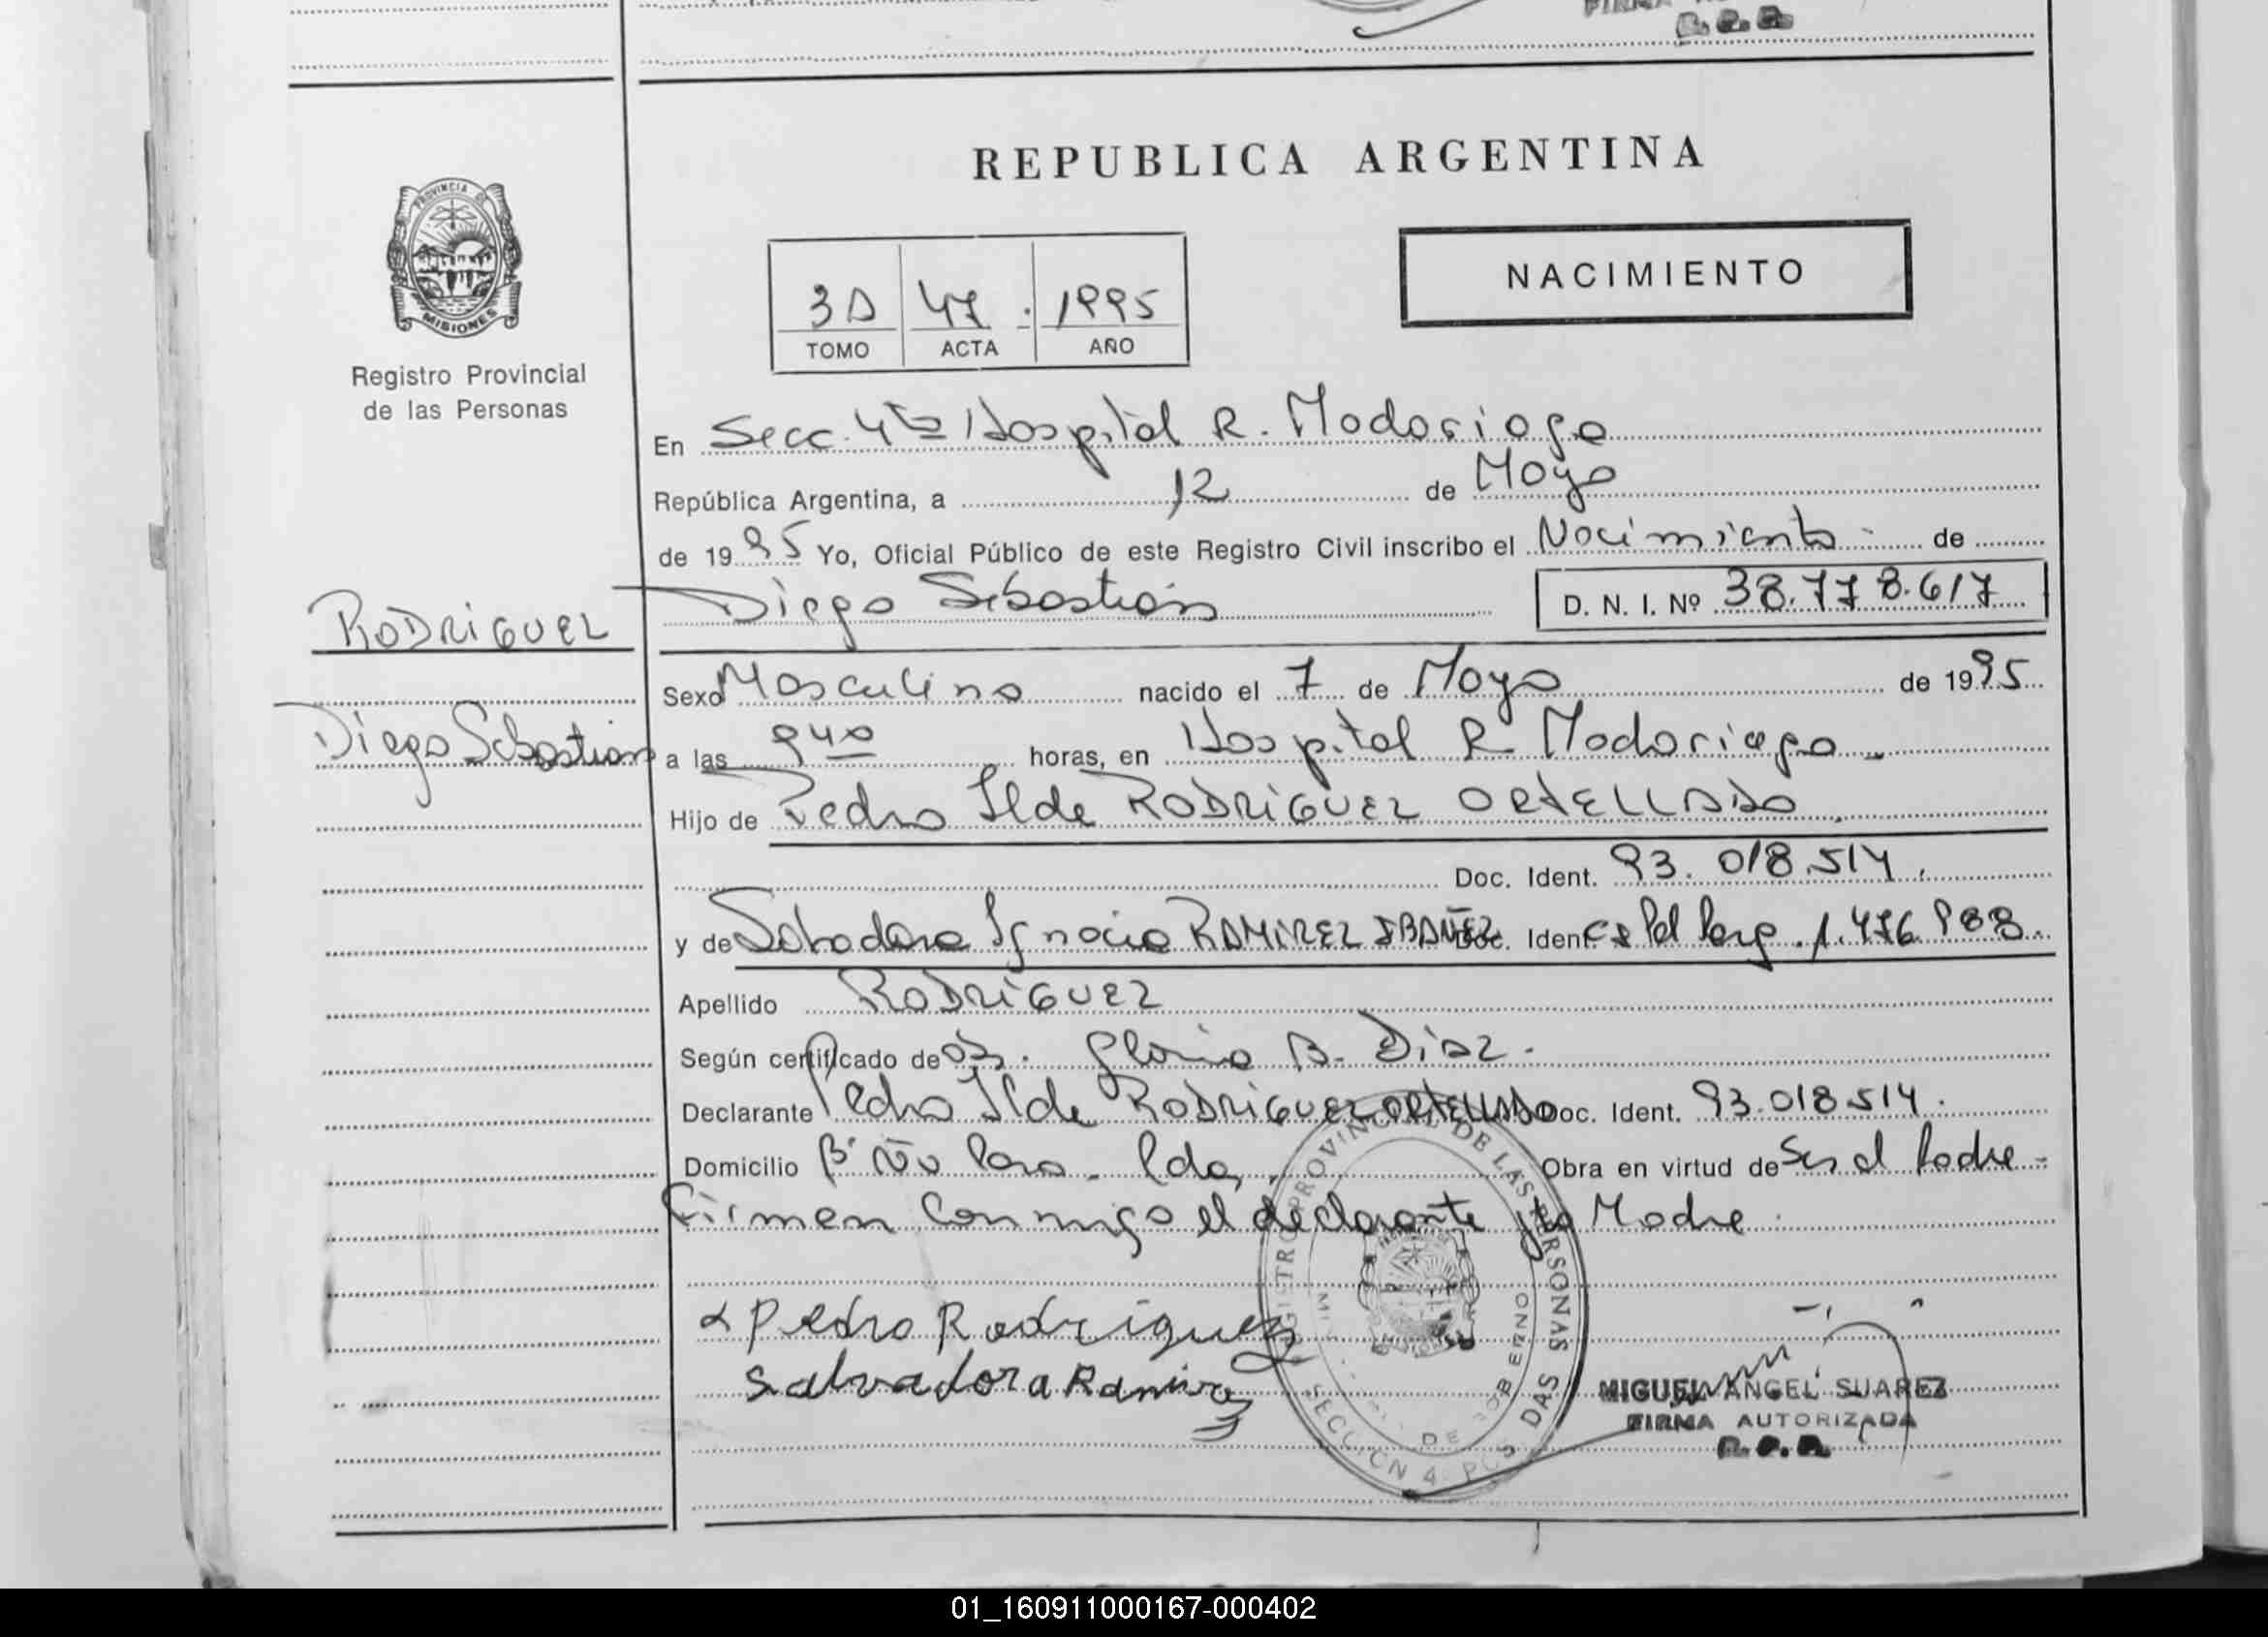 REPUBLICA ARGENTINA
PROVINCIA DE
MISIONES
Registro Provincial
de las Personas
NACIMIENTO
3D 47 . 1995
TOMO ACTA AÑO
En Secc. 4ta Hospital R. Madariaga
República Argentina, a 12 de Mayo
de 1995 Yo, Oficial Público de este Registro Civil inscribo el Nacimiento de
RODRIGUEZ
Diego Sebastián D. N. I. Nº 38.778.617
Sexo Masculino nacido el 7 de Mayo de 1995
Diego Sebastian
a las 9 40 horas, en Hospital R. Madariaga
Hijo de Pedro Ilde RODRIGUEZ ORTELLADO
Doc. Ident. 93.018.514.
y de Salvadora Ignacia RAMIREZ IBAÑEZ Doc. Ident. 1.476.988.
Apellido RODRIGUEZ
Según certificado de Obs. Gloria B. Diaz.
Declarante Pedro Ilde RODRIGUEZ ORTELLADO Doc. Ident. 93.018.514.
Domicilio Bº Pdas. Obra en virtud de Ser el Padre
Firman conmigo el declarante y la Madre.
Pedro Rodriguez
Salvadora Ramirez
REGISTRO PROVINCIAL DE LAS PERSONAS
DE GOBIERNO
SECCION 4 POSADAS
MIGUEL ANGEL SUAREZ
FIRMA AUTORIZADA
R. P. P.
01_160911000167-000402